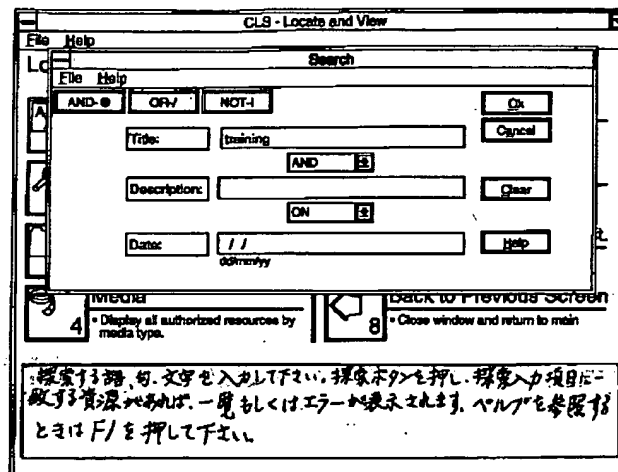 CLS - Locate and View
File Help
Search
File Help
AND-⊕ OR-/ NOT-!
Ok
Title: training
Cancel
AND
Description:
Clear
ON
Date: / /
Help
dd/mm/yy
4 Media
• Display all authorized resources by
media type.
8 Back to Previous Screen
• Close window and return to main
探索する語、句、文字を入力して下さい。探索ボタンを押し、探索入力項目に一
致する資源があれば、一覧もしくはエラーが表示されます。ヘルプを参照する
ときはF1を押して下さい。